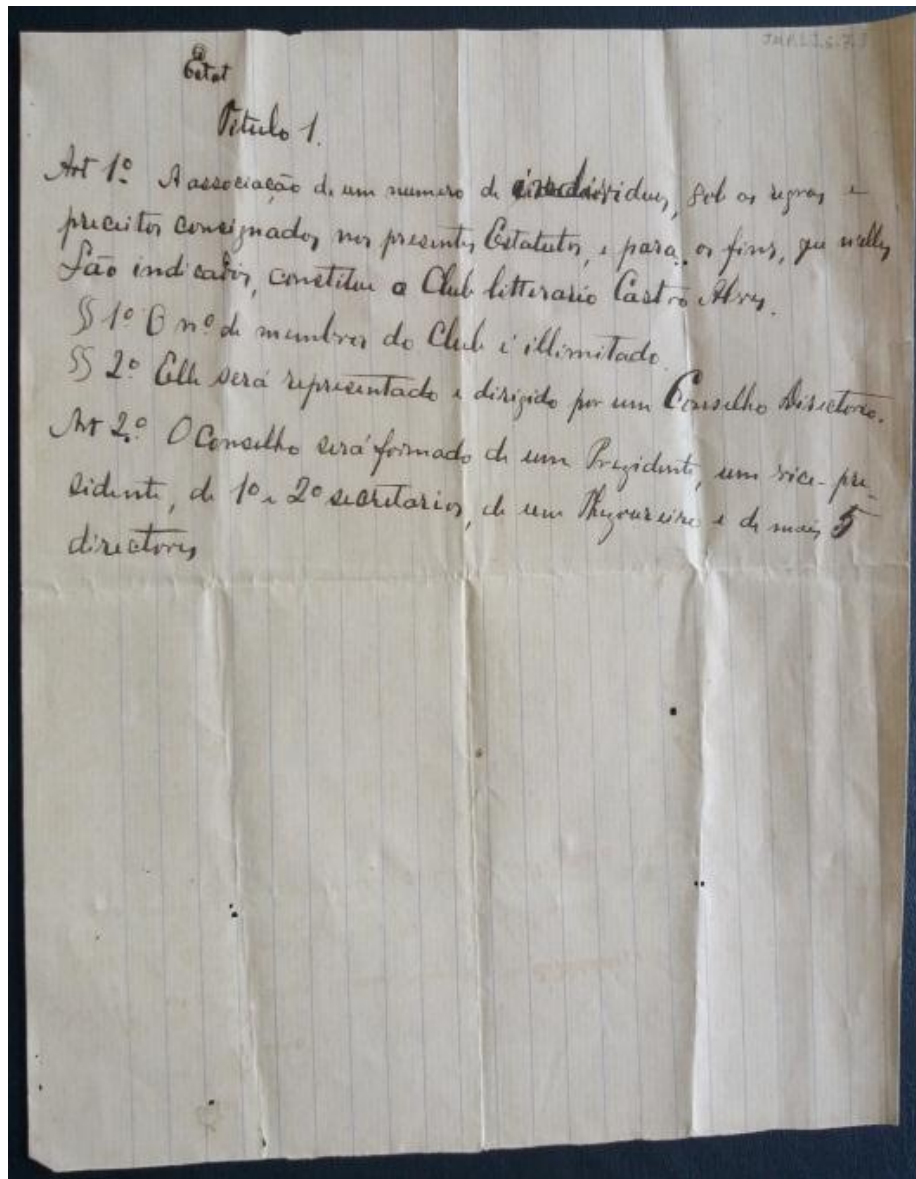 Estat
Titulo 1.
Art 1º A associação de um numero de individuos, sob as regras e
preceitos consignados nos presentes Estatutos, e para os fins, que nelles
são indicados, constitue o Club litterario Castro Alves.
§§ 1º O nº de membros do Club é illimitado.
§§ 2º Elle será representado e dirigido por um Conselho Directorio.
Art 2.º O Conselho será formado de um Prezidente, um vice-pre-
sidente, de 1º e 2º secretarios, de um Thezoureiro e de mais 5
directores